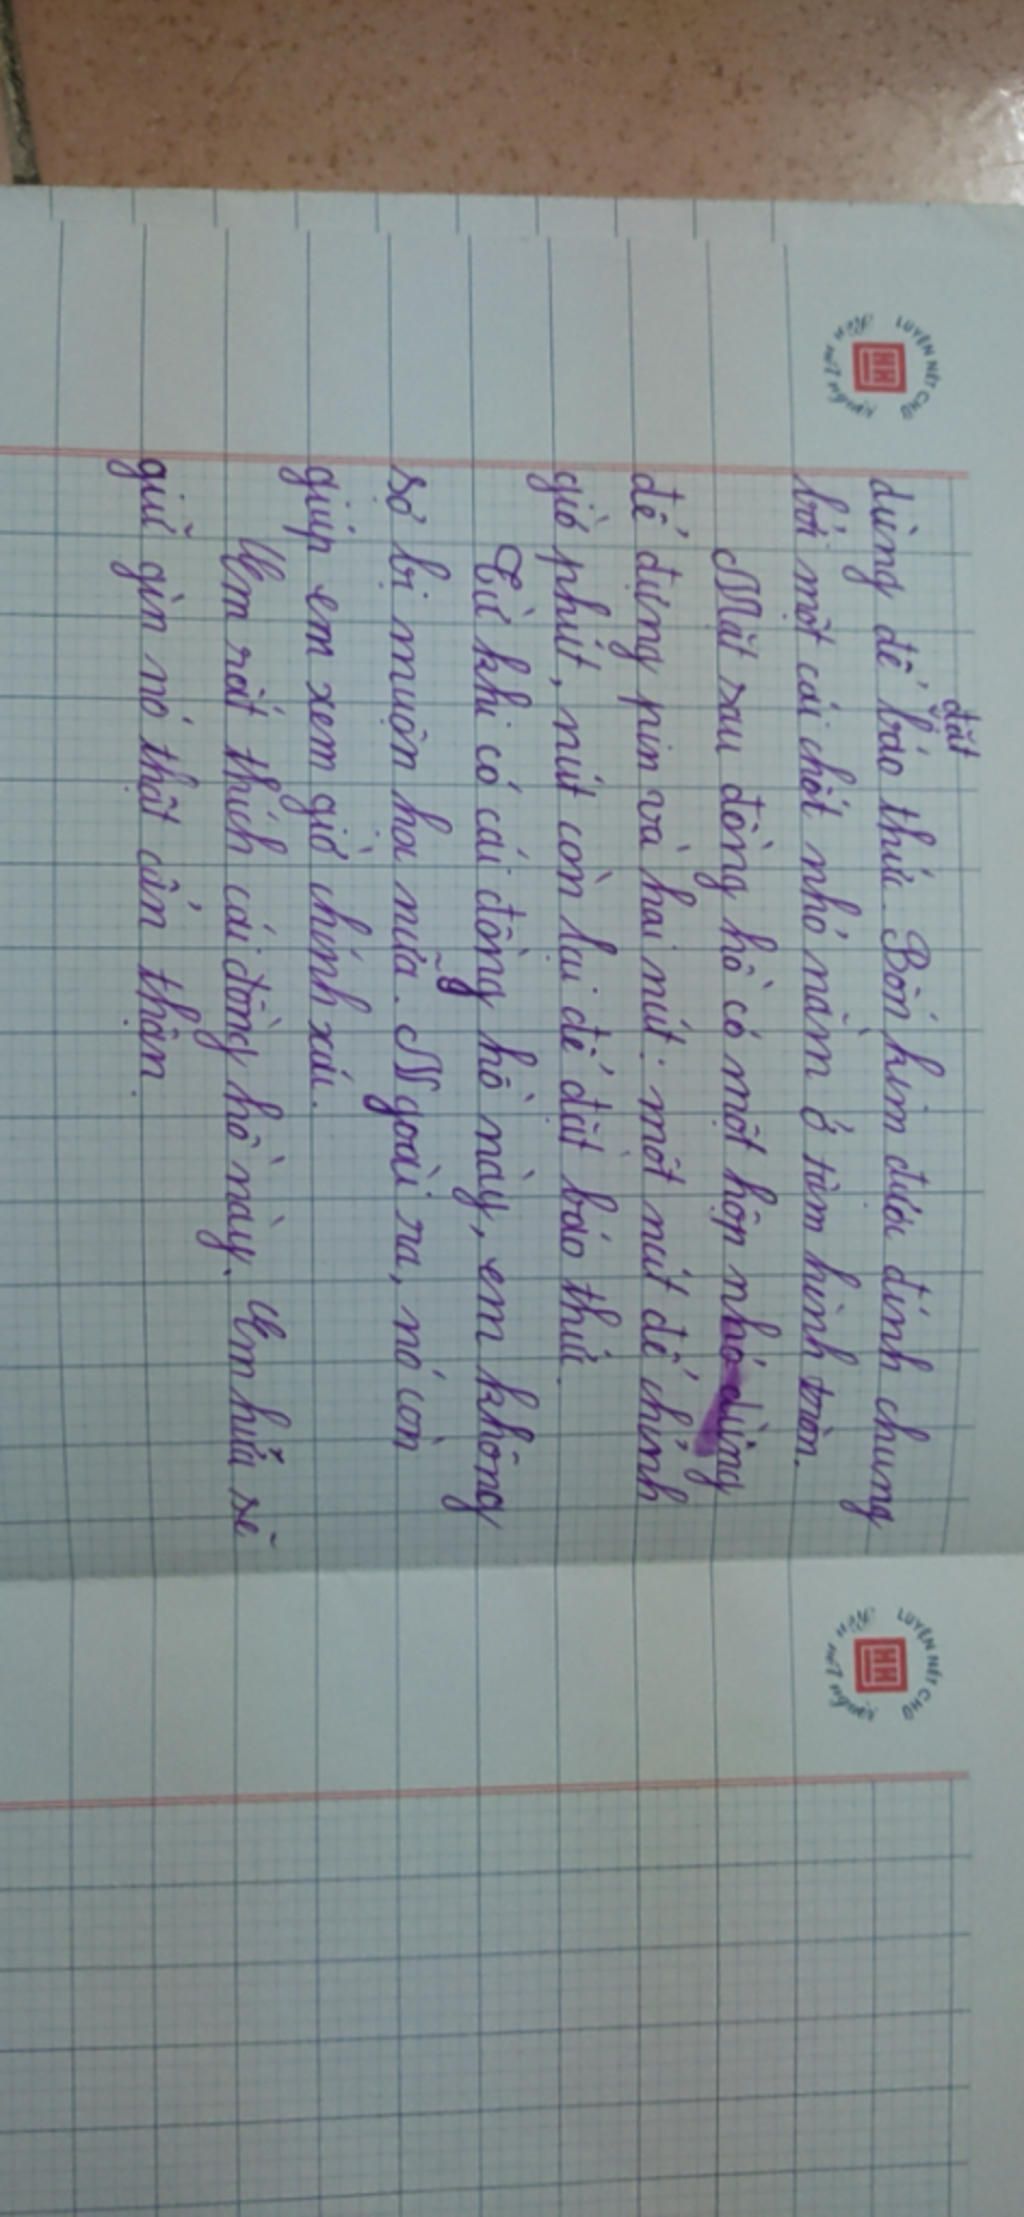 LUYỆN NÉT CHỮ
Rèn nết người
HH
đặt
dùng để báo thức. Bốn kim được đính chung
bởi một cái chốt nhỏ nằm ở tâm hình tròn.
Mặt sau đồng hồ có một hộp nhỏ dùng
để đựng pin và hai nút: một nút để chỉnh
giờ phút, nút còn lại để đặt báo thức.
Từ khi có cái đồng hồ này, em không
sợ bị muộn học nữa. Ngoài ra, nó còn
giúp em xem giờ chính xác.
Em rất thích cái đồng hồ này. Em hứa sẽ
giữ gìn nó thật cẩn thận.
LUYỆN NÉT CHỮ
Rèn nết người
HH